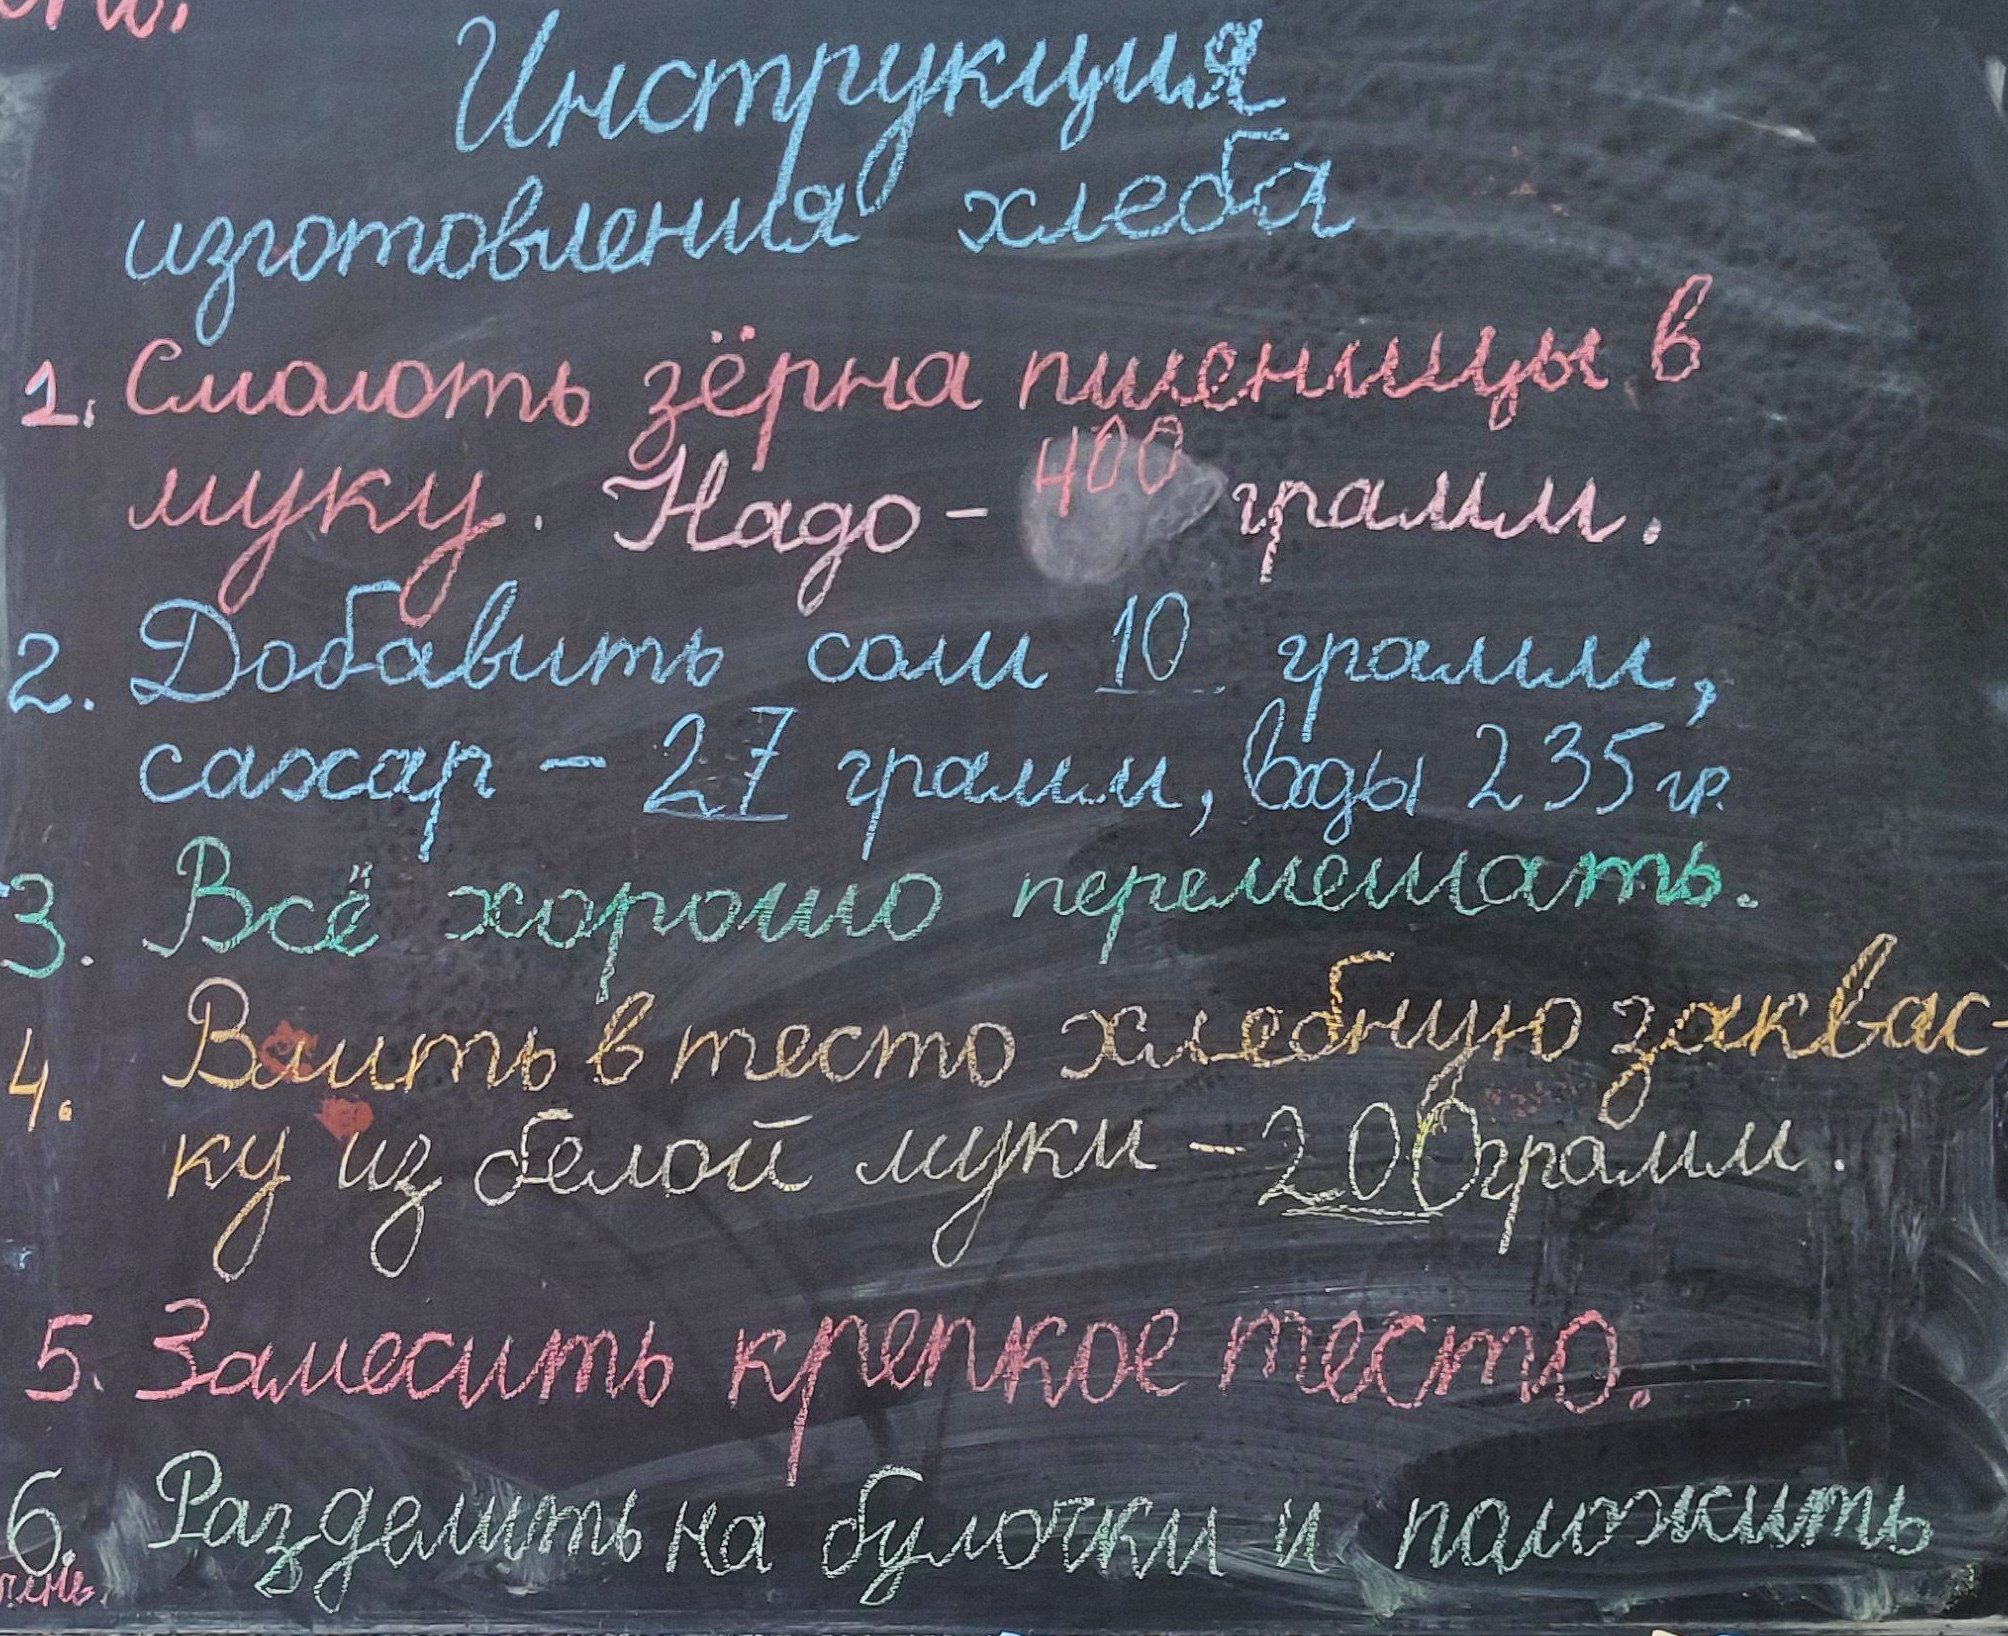 Инструкция
изготовления хлеба
1. Смолоть зёрна пшеницы в
муку. Надо - 400 грамм.
2. Добавить соли 10 грамм,
сахар - 27 грамм, воды 235 гр.
3. Всё хорошо перемешать.
4. Влить в тесто хлебную заквас-
ку из белой муки - 200 грамм.
5. Замесить крепкое тесто.
6. Разделить на булочки и положить